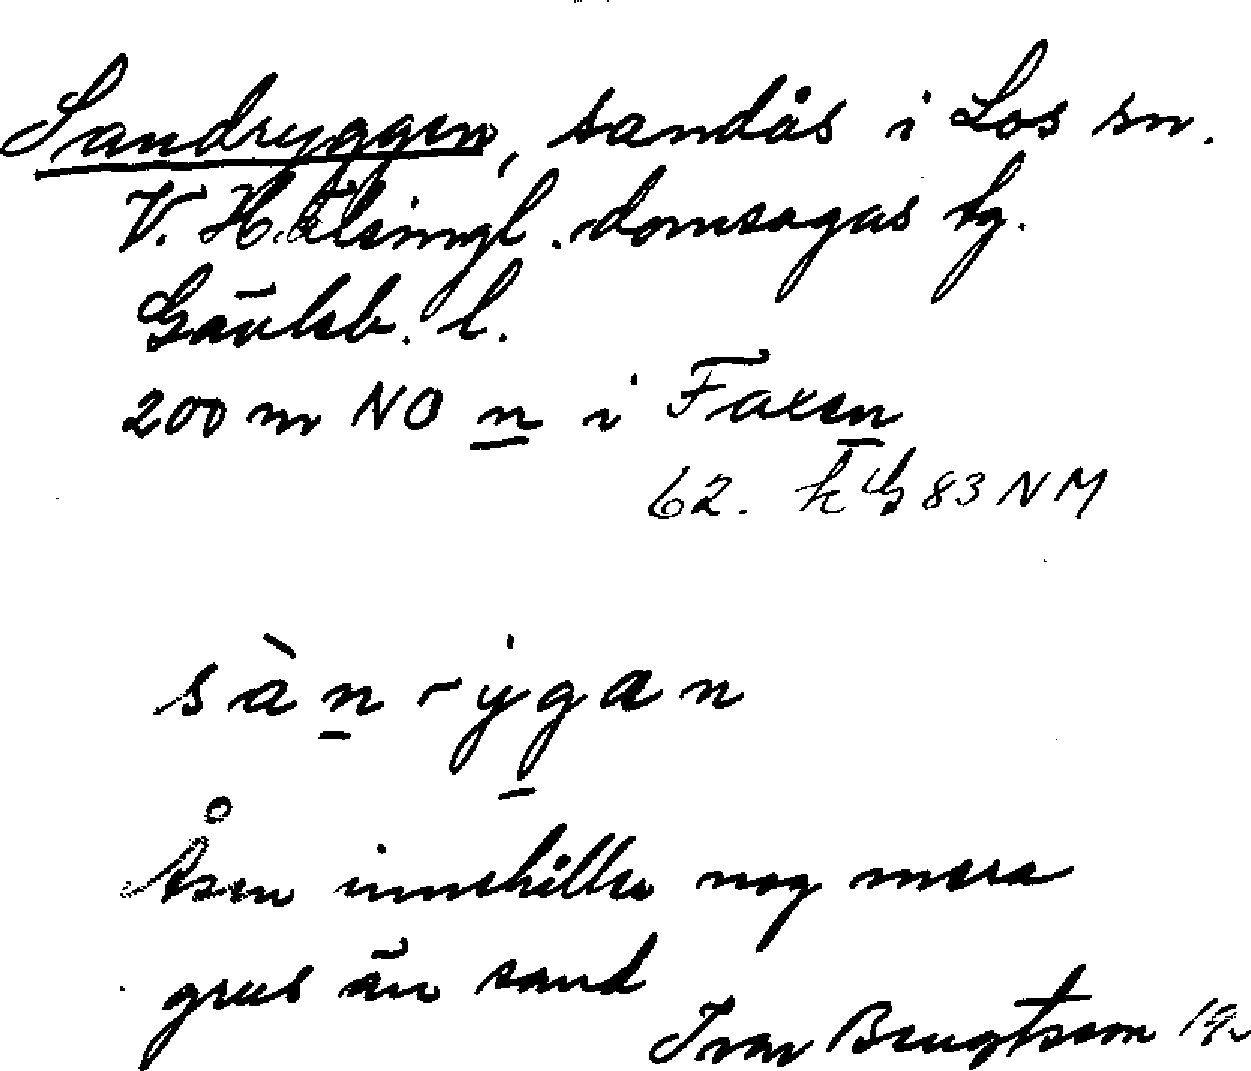 Sandryggen, sandås i Los sn.
V. Hälsingl. domsagas tg.
Gävleb. l.
200 m NO n i Faxen
62. k G 83 NM
sàn-rỳgan
Åsen innehåller nog mera
grus än sand
Ivar Bengtsson